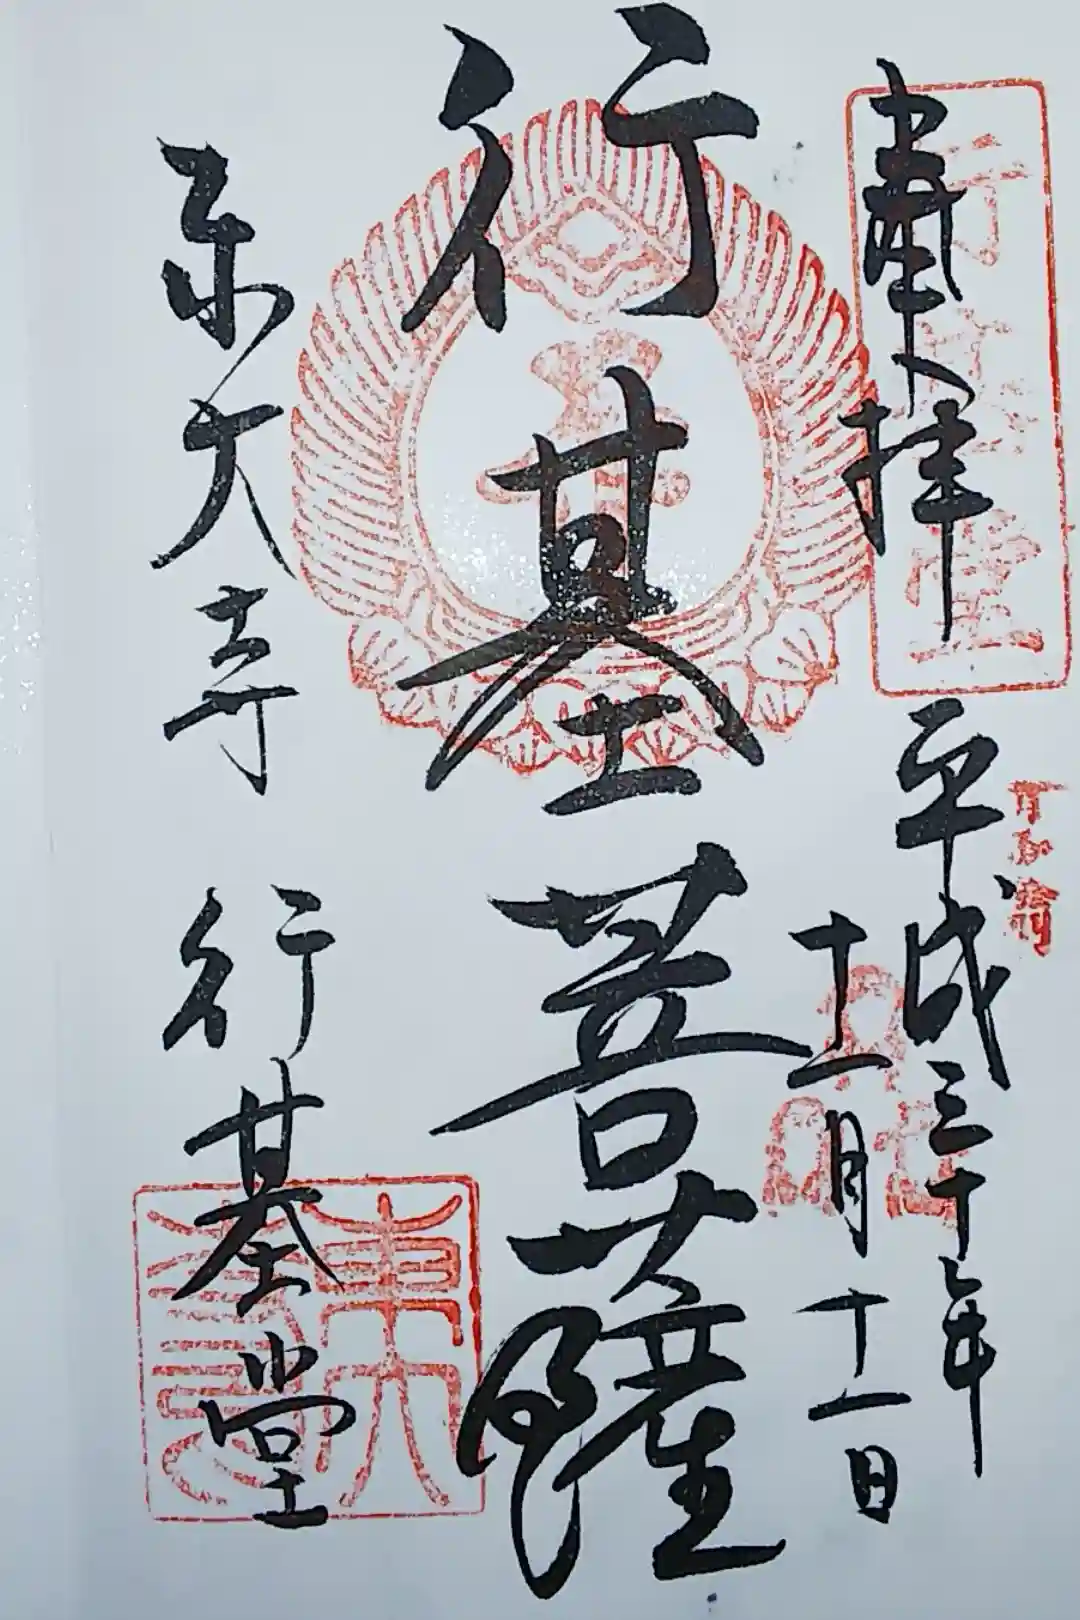 奉拝
行基堂
平成三十年
十一月十一日
行基菩薩
東大寺 行基堂